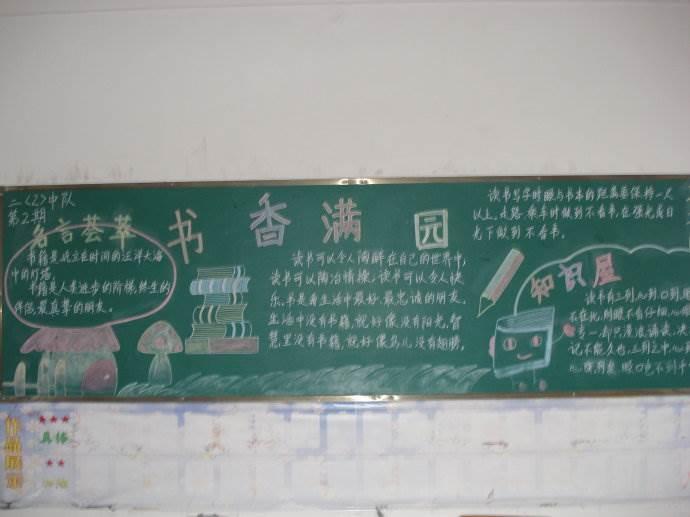 二〈2〉中队
第2期
名言荟萃
书籍是屹立在时间的汪洋大海
中的灯塔。
书籍是人类进步的阶梯,终生的
伴侣,最真挚的朋友。
书香满园
读书可以令人陶醉在自己的世界中,
读书可以陶冶情操,读书可以令人快
乐,书是看生活中最好、最忠诚的朋友。
生活中没有书籍,就好像没有阳光,智
慧里没有书籍,就好像鸟儿没有翅膀。
读书写字时眼与书本的距离要保持一尺
以上,走路、乘车时做到不看书,在强光或日
光下做到不看书。
知识屋
读书有三到,心到、口到、眼
不在此,则眼不看仔细,心眼
专一,却只漫浪诵读,决
记不能久也,三到之中,心到
心既到矣,眼口岂不到乎
具体